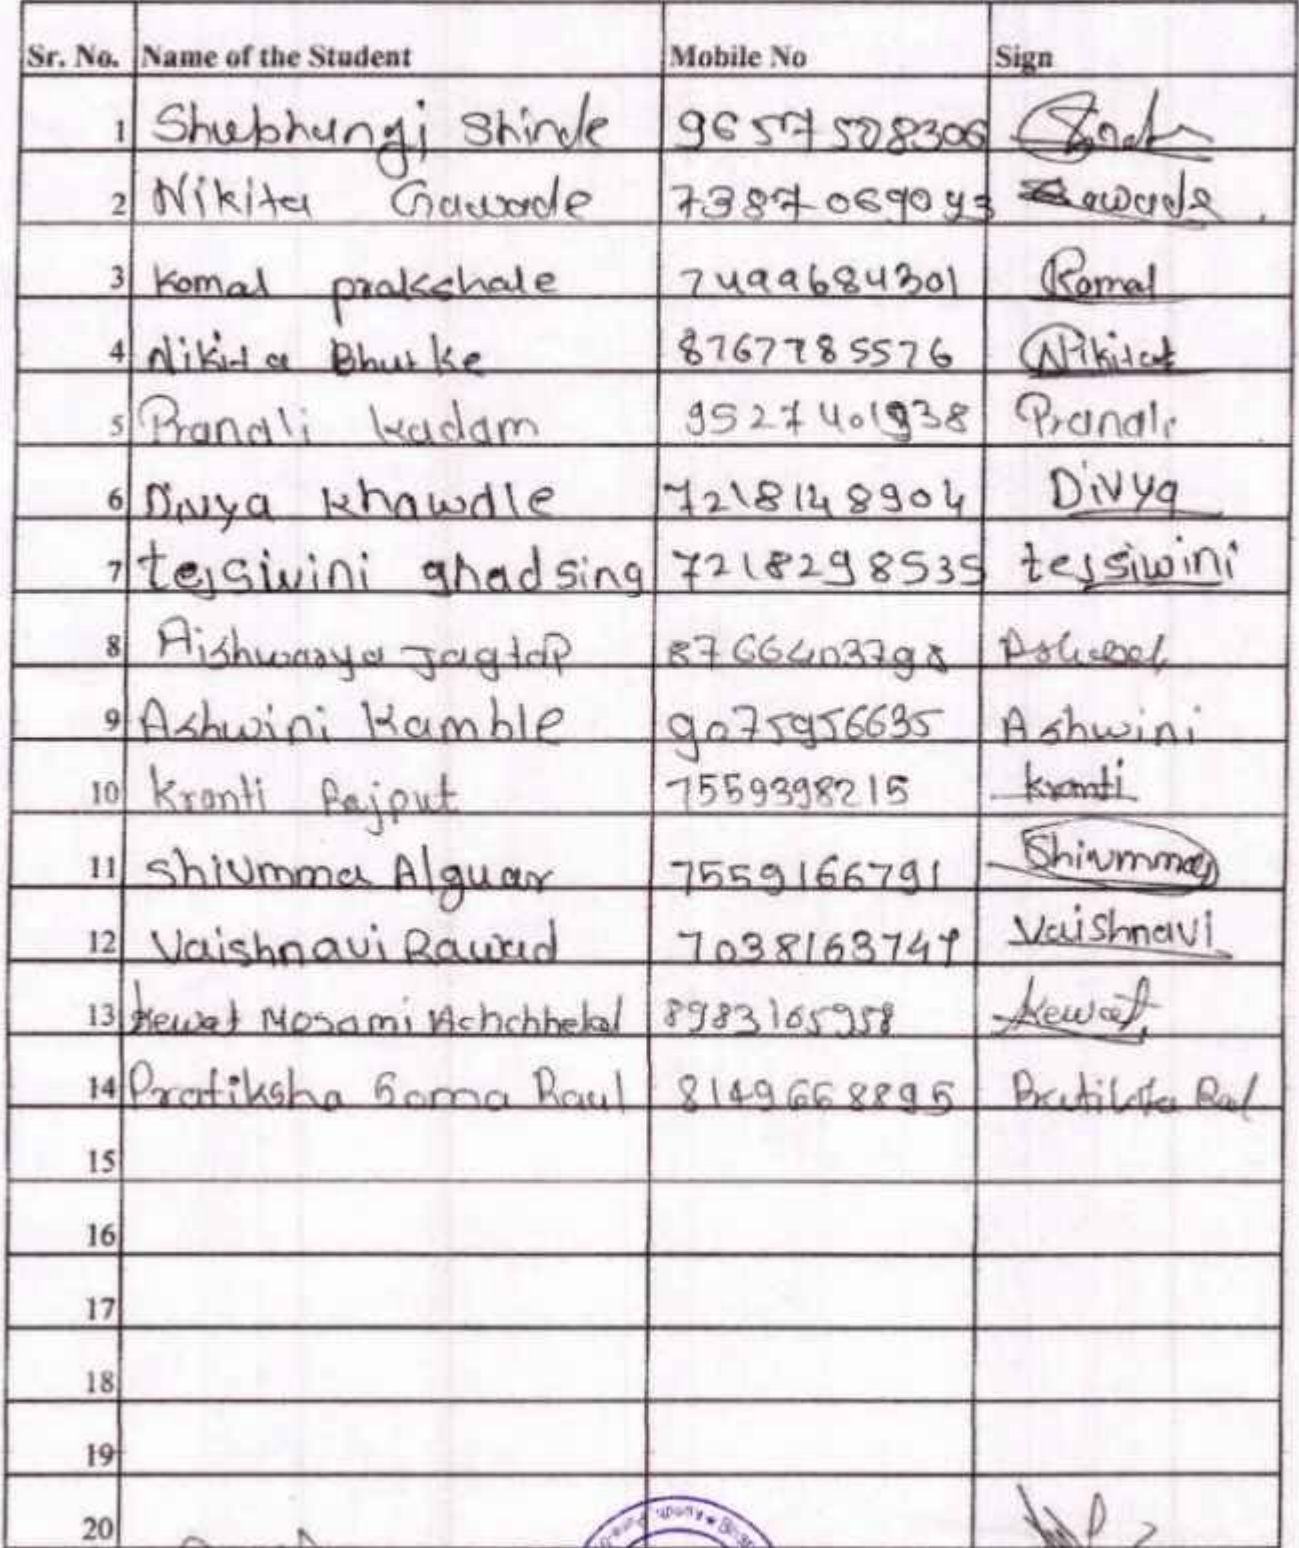 Sr. No. Name of the Student Mobile No Sign
1 Shubhungi Shinde 9657508306
2 Nikita Gawade 7387069093 Gawade
3 Komal prakshale 7499684301 Komal
4 Nikita Bhurke 8767785576 Nikita
5 Pranali kadam 9527401938 Pranali
6 Divya khawdle 7218148904 Divya
7 tejsiwini ghadsing 7218298535 tejsiwini
8 Aishwarya Jagtap 8766403798
9 Ashwini Kamble 9075956635 Ashwini
10 Kranti Rajput 7559398215 kranti
11 Shivmma Alguar 7559166791 Shivmma
12 Vaishnavi Rawad 7038163747 Vaishnavi
13 Kewat Mosami Achchhelal 8983165958 Kewat
14 Pratiksha Soma Raul 8149668895 Pratiksha Raul
15
16
17
18
19
20